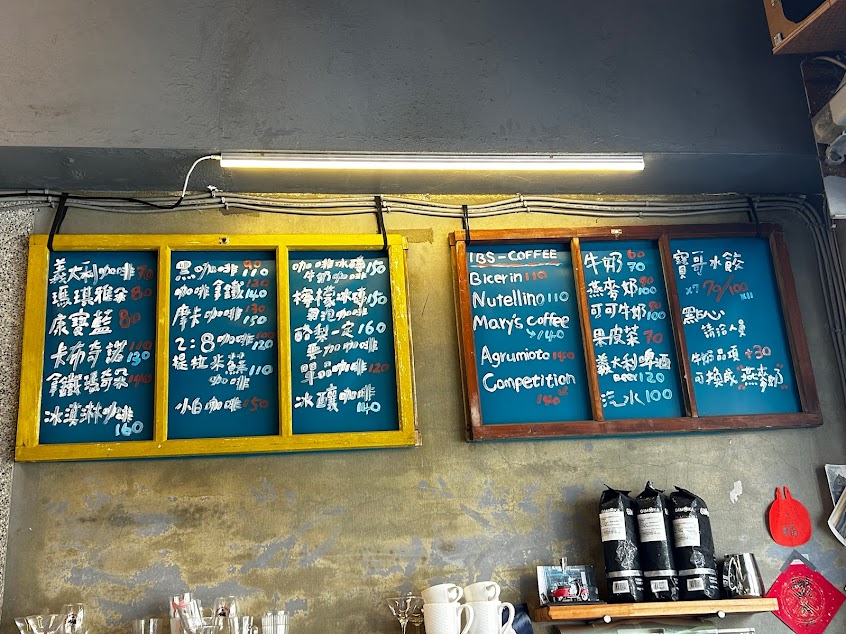 義大利咖啡 70
瑪琪雅朵 80
康寶藍 80
卡布奇諾 110
130
拿鐵瑪奇朵 140
冰淇淋咖啡
160
黑咖啡 90
110
咖啡拿鐵 120
140
摩卡咖啡 130
150
2:8咖啡 100
120
提拉米蘇 110
咖啡
小白咖啡 150
咖啡冰沙 150
牛奶咖啡
檸檬冰沙 150
氣泡咖啡
一定 160
要咖啡
單品咖啡 120
冰釀咖啡
140
IBS-COFFEE
Bicerin 110
Nutellino 110
Mary's coffee
140
Agrumioto 140
Competition
140
牛奶 60
70
燕麥奶 80
100
可可牛奶 80
100
果皮茶 70
義利啤酒
BEER 120
汽水 100
寶哥水餃
x7 70/100
點心
請洽
牛奶品項 +30
可換成"燕麥奶"
GIMOKA